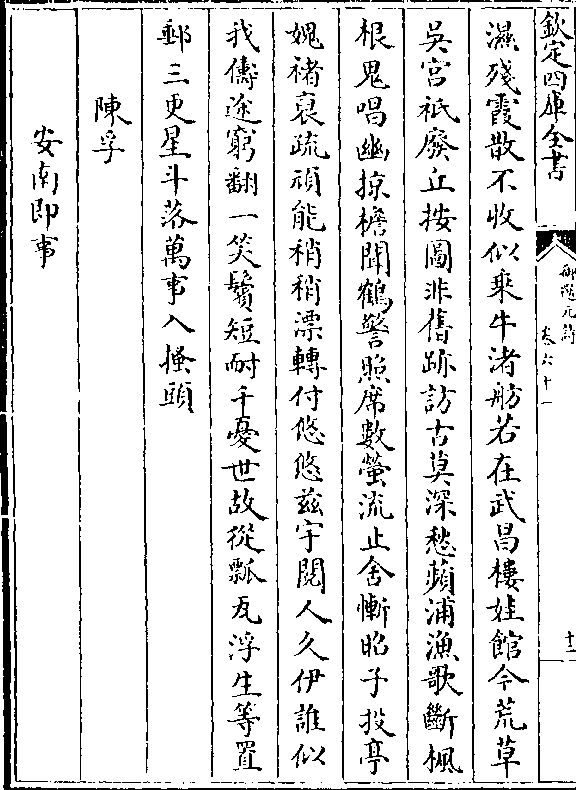 欽定四庫全書
御選元詩
卷六十一
十二
濕殘霞散不收似乘牛渚舫若在武昌樓娃館今荒草
吳宮祇廢丘按圖非舊跡訪古莫深愁蘋浦漁歌斷楓
根鬼唱幽掠檐聞鶴警照席數螢流止舍慚昭子投亭
媿褚裒疏頑能稍稍漂轉付悠悠兹宇閱人久伊誰似
我儔途窮翻一笑鬢短耐千憂世故從瓢瓦浮生等置
郵三更星斗落萬事入搔頭
陳孚
安南即事